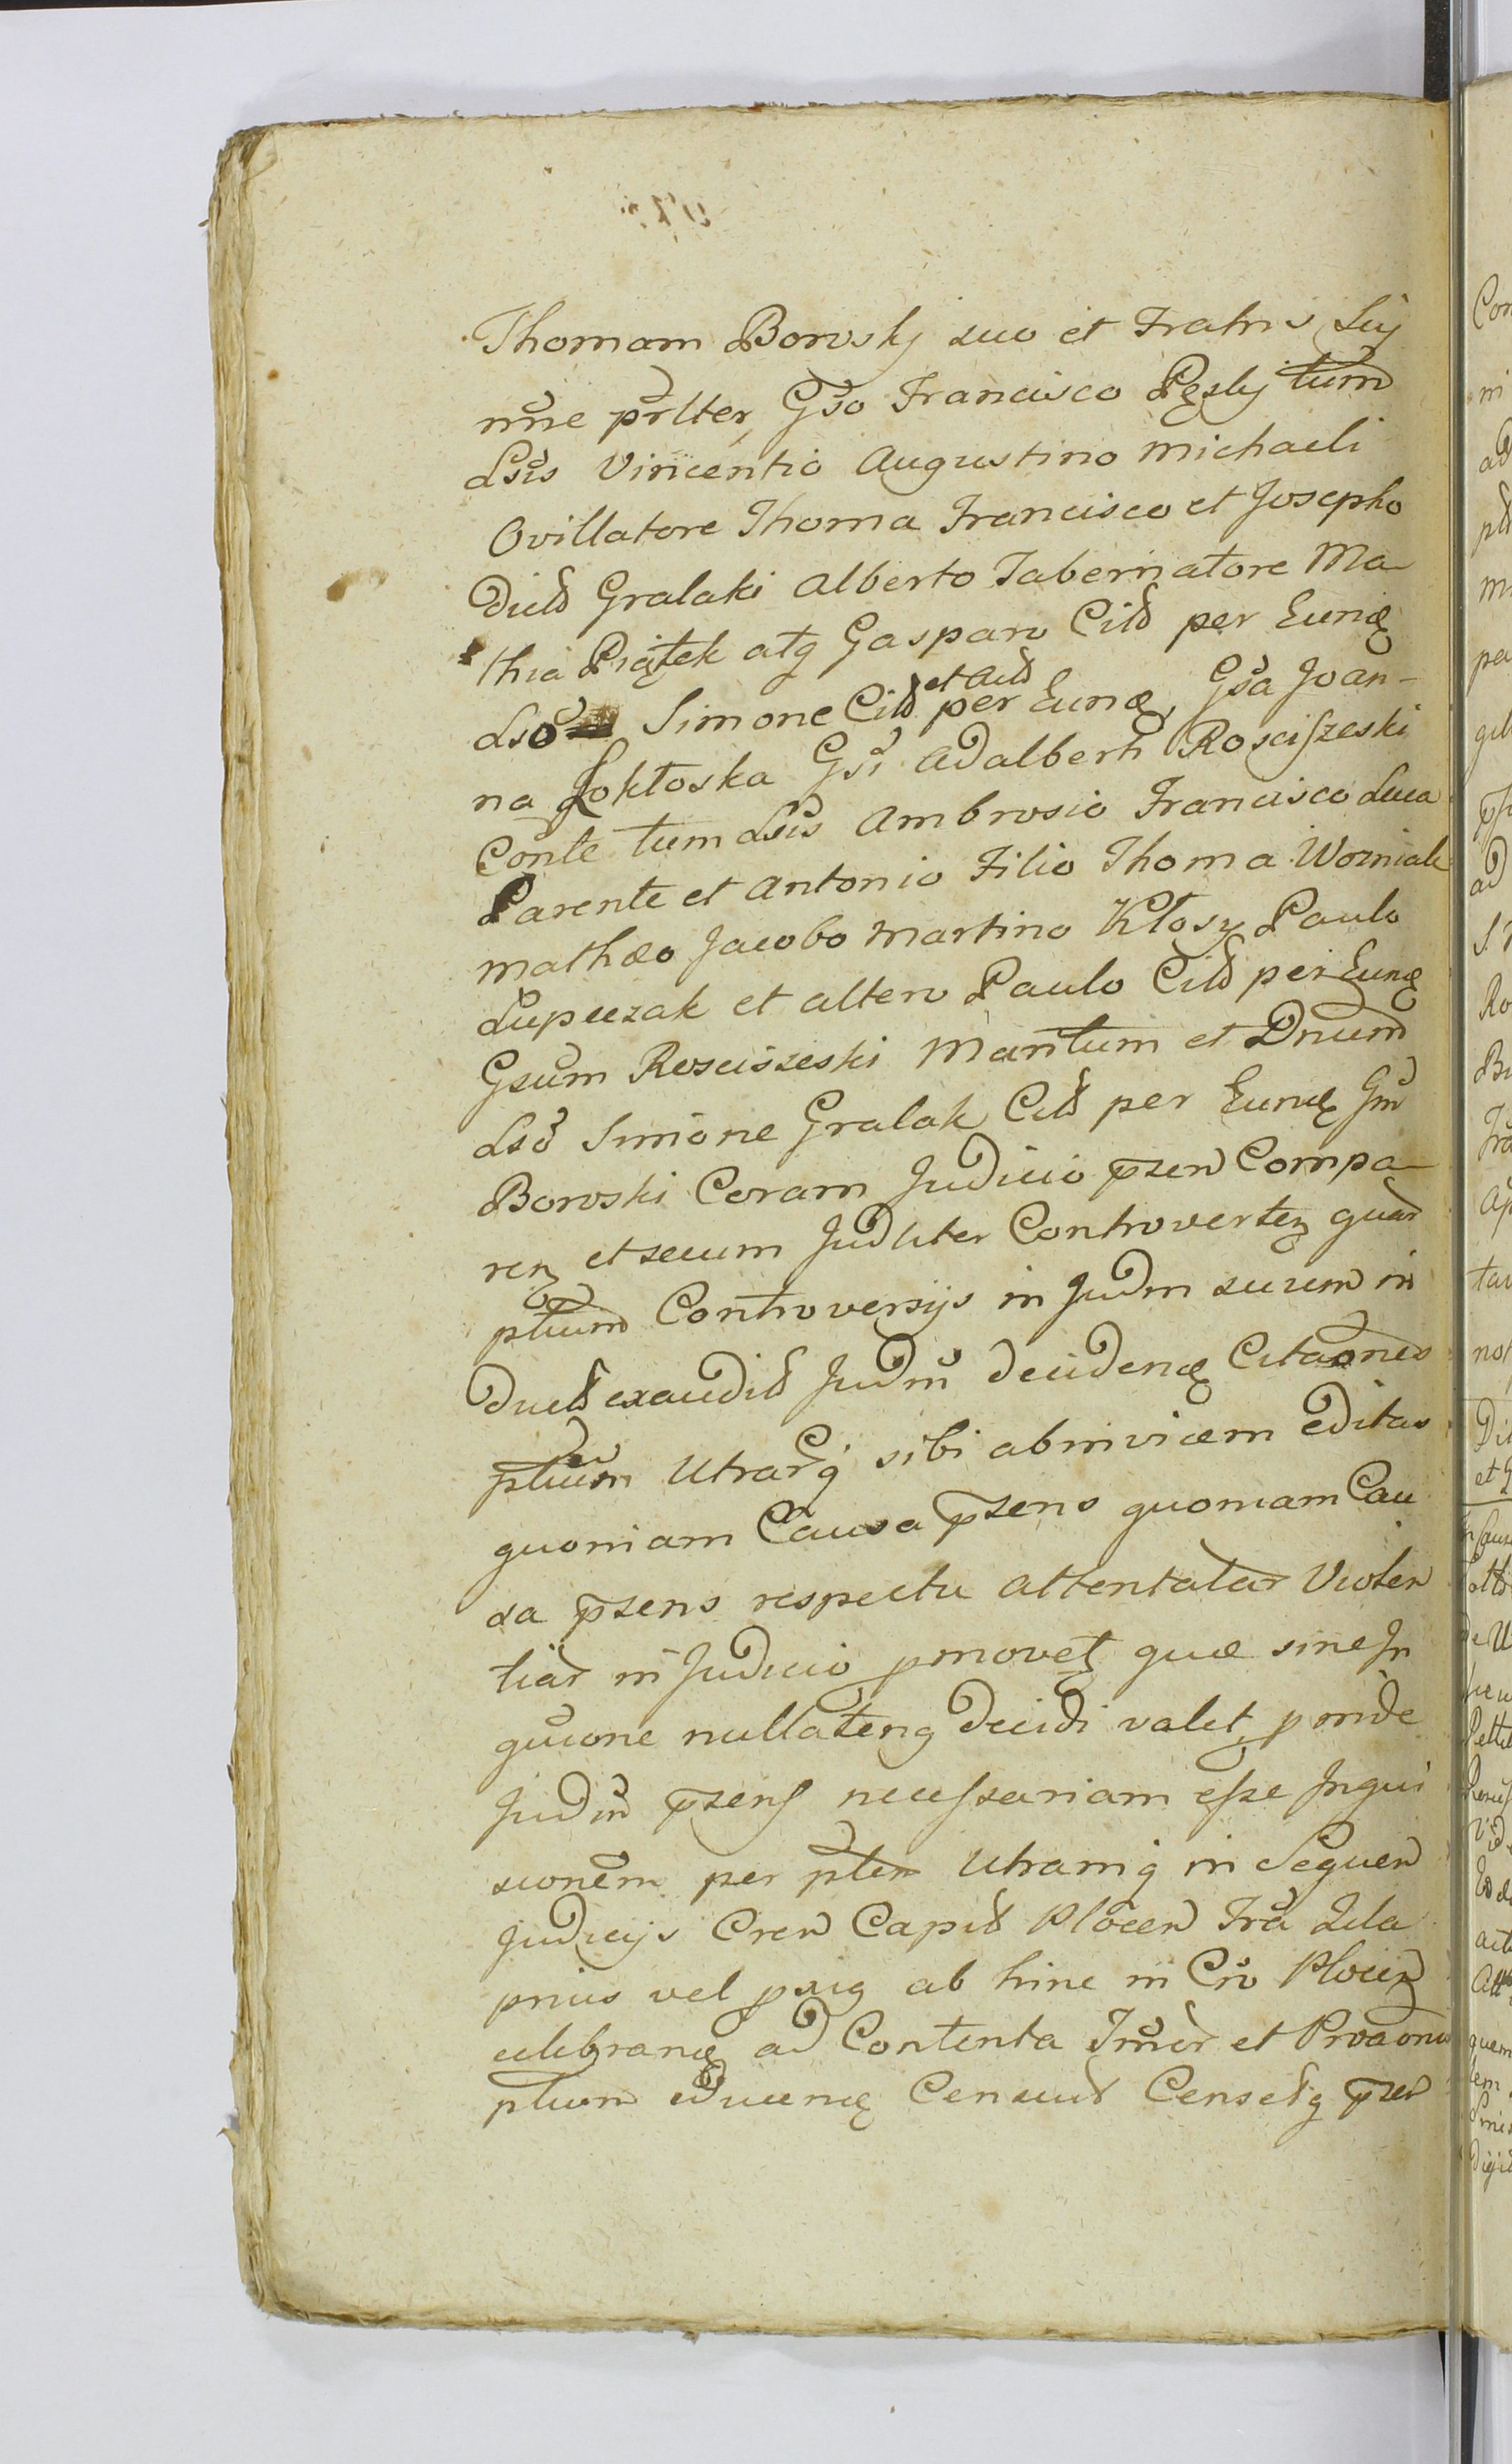 Thomam Borosky suo et Fratris Suy
nnē prlter, Gso Francisco Pęsky tum
Lsis Vincentio Augustino Michaeli
Ovillatore Thoma Francisco et Josepho
Dictt Gralaki Alberto Tabernatore Ma-
thia Piątek atq Gasparo Citt per Eunde
Lso Simone Citt et Actt per Eunde, Gsa Joan-
na Łoktoska Gsi Adalberti Rosciszeski
Conte tum Lsis Ambrosio Francisco Luca
Parente et Antonio Filio Thoma Wozniak
Mathæo Jacobo Martino Kłosy Paulo
Lupeczak et altero Paulo Citt per Eunde
Gsum Rosciszeski Maritum et Dnum
Lso Simone Gralak Citt per Eunde Gm
Boroski Coram Judicio pzen Compa-
ren et secum Judlter Controverten quar
ptium Controversijs in Judm suum in
Duett exaudit Judm decidende Citaones
ptium Utrarq sibi abinvicem Editas
quoniam Causa pzens quoniam Cau
sa pzens respectu attentatar Violen
tiar in Judicio pmovet quæ sine In
quione nullateng decidi valet, proinde
Judm pzens necessariam esse Inqui
sionem per ptem Utramq in Sequen
Judicijs Cren Capit Plocen Fra 2da
prius vel pxig ab hinc in Cro Plocen
celebrande ad Contenta Imer et Prvaonu
ptium educende Censuit Censetq pzen